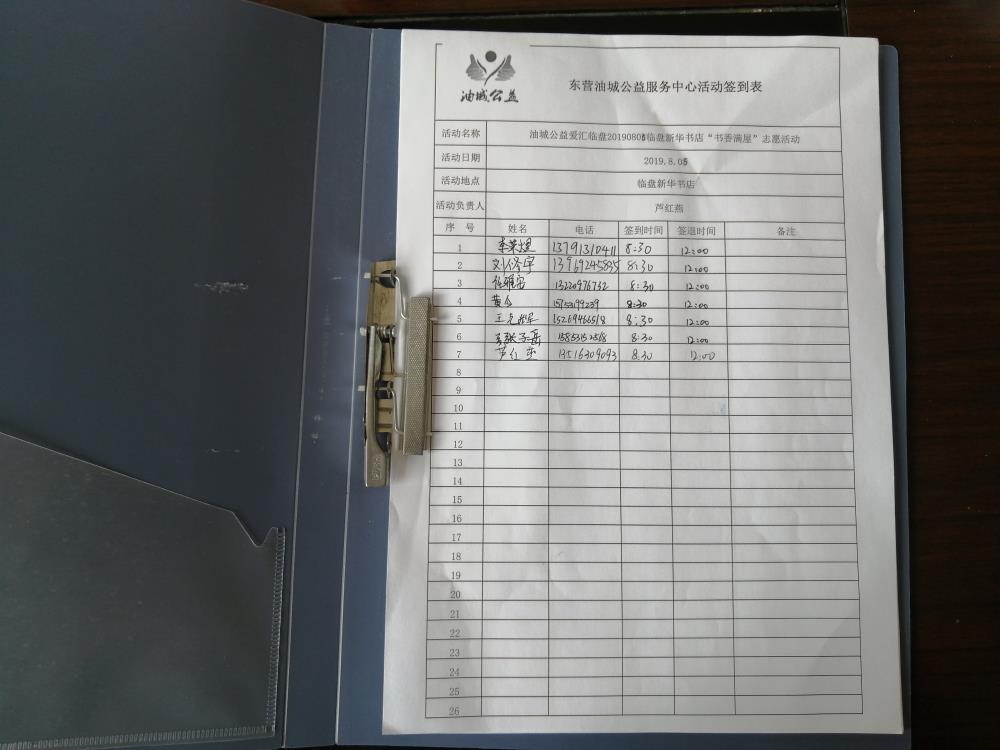 油城公益
东营油城公益服务中心活动签到表
活动名称 油城公益爱汇临盘20190805临盘新华书店“书香满屋”志愿活动
活动日期 2019.8.05
活动地点 临盘新华书店
活动负责人 芦红燕
序 号 姓名 电话 签到时间 签退时间 备注
1 13791310411 8:30 12:00
2 13969245835 8:30 12:00
3 13220976732 8:30 12:00
4 8:30 12:00
5 15269466518 8:30 12:00
6 15853152518 8:30 12:00
7 13516309093 8:30 12:00
8
9
10
11
12
13
14
15
16
17
18
19
20
21
22
23
24
25
26